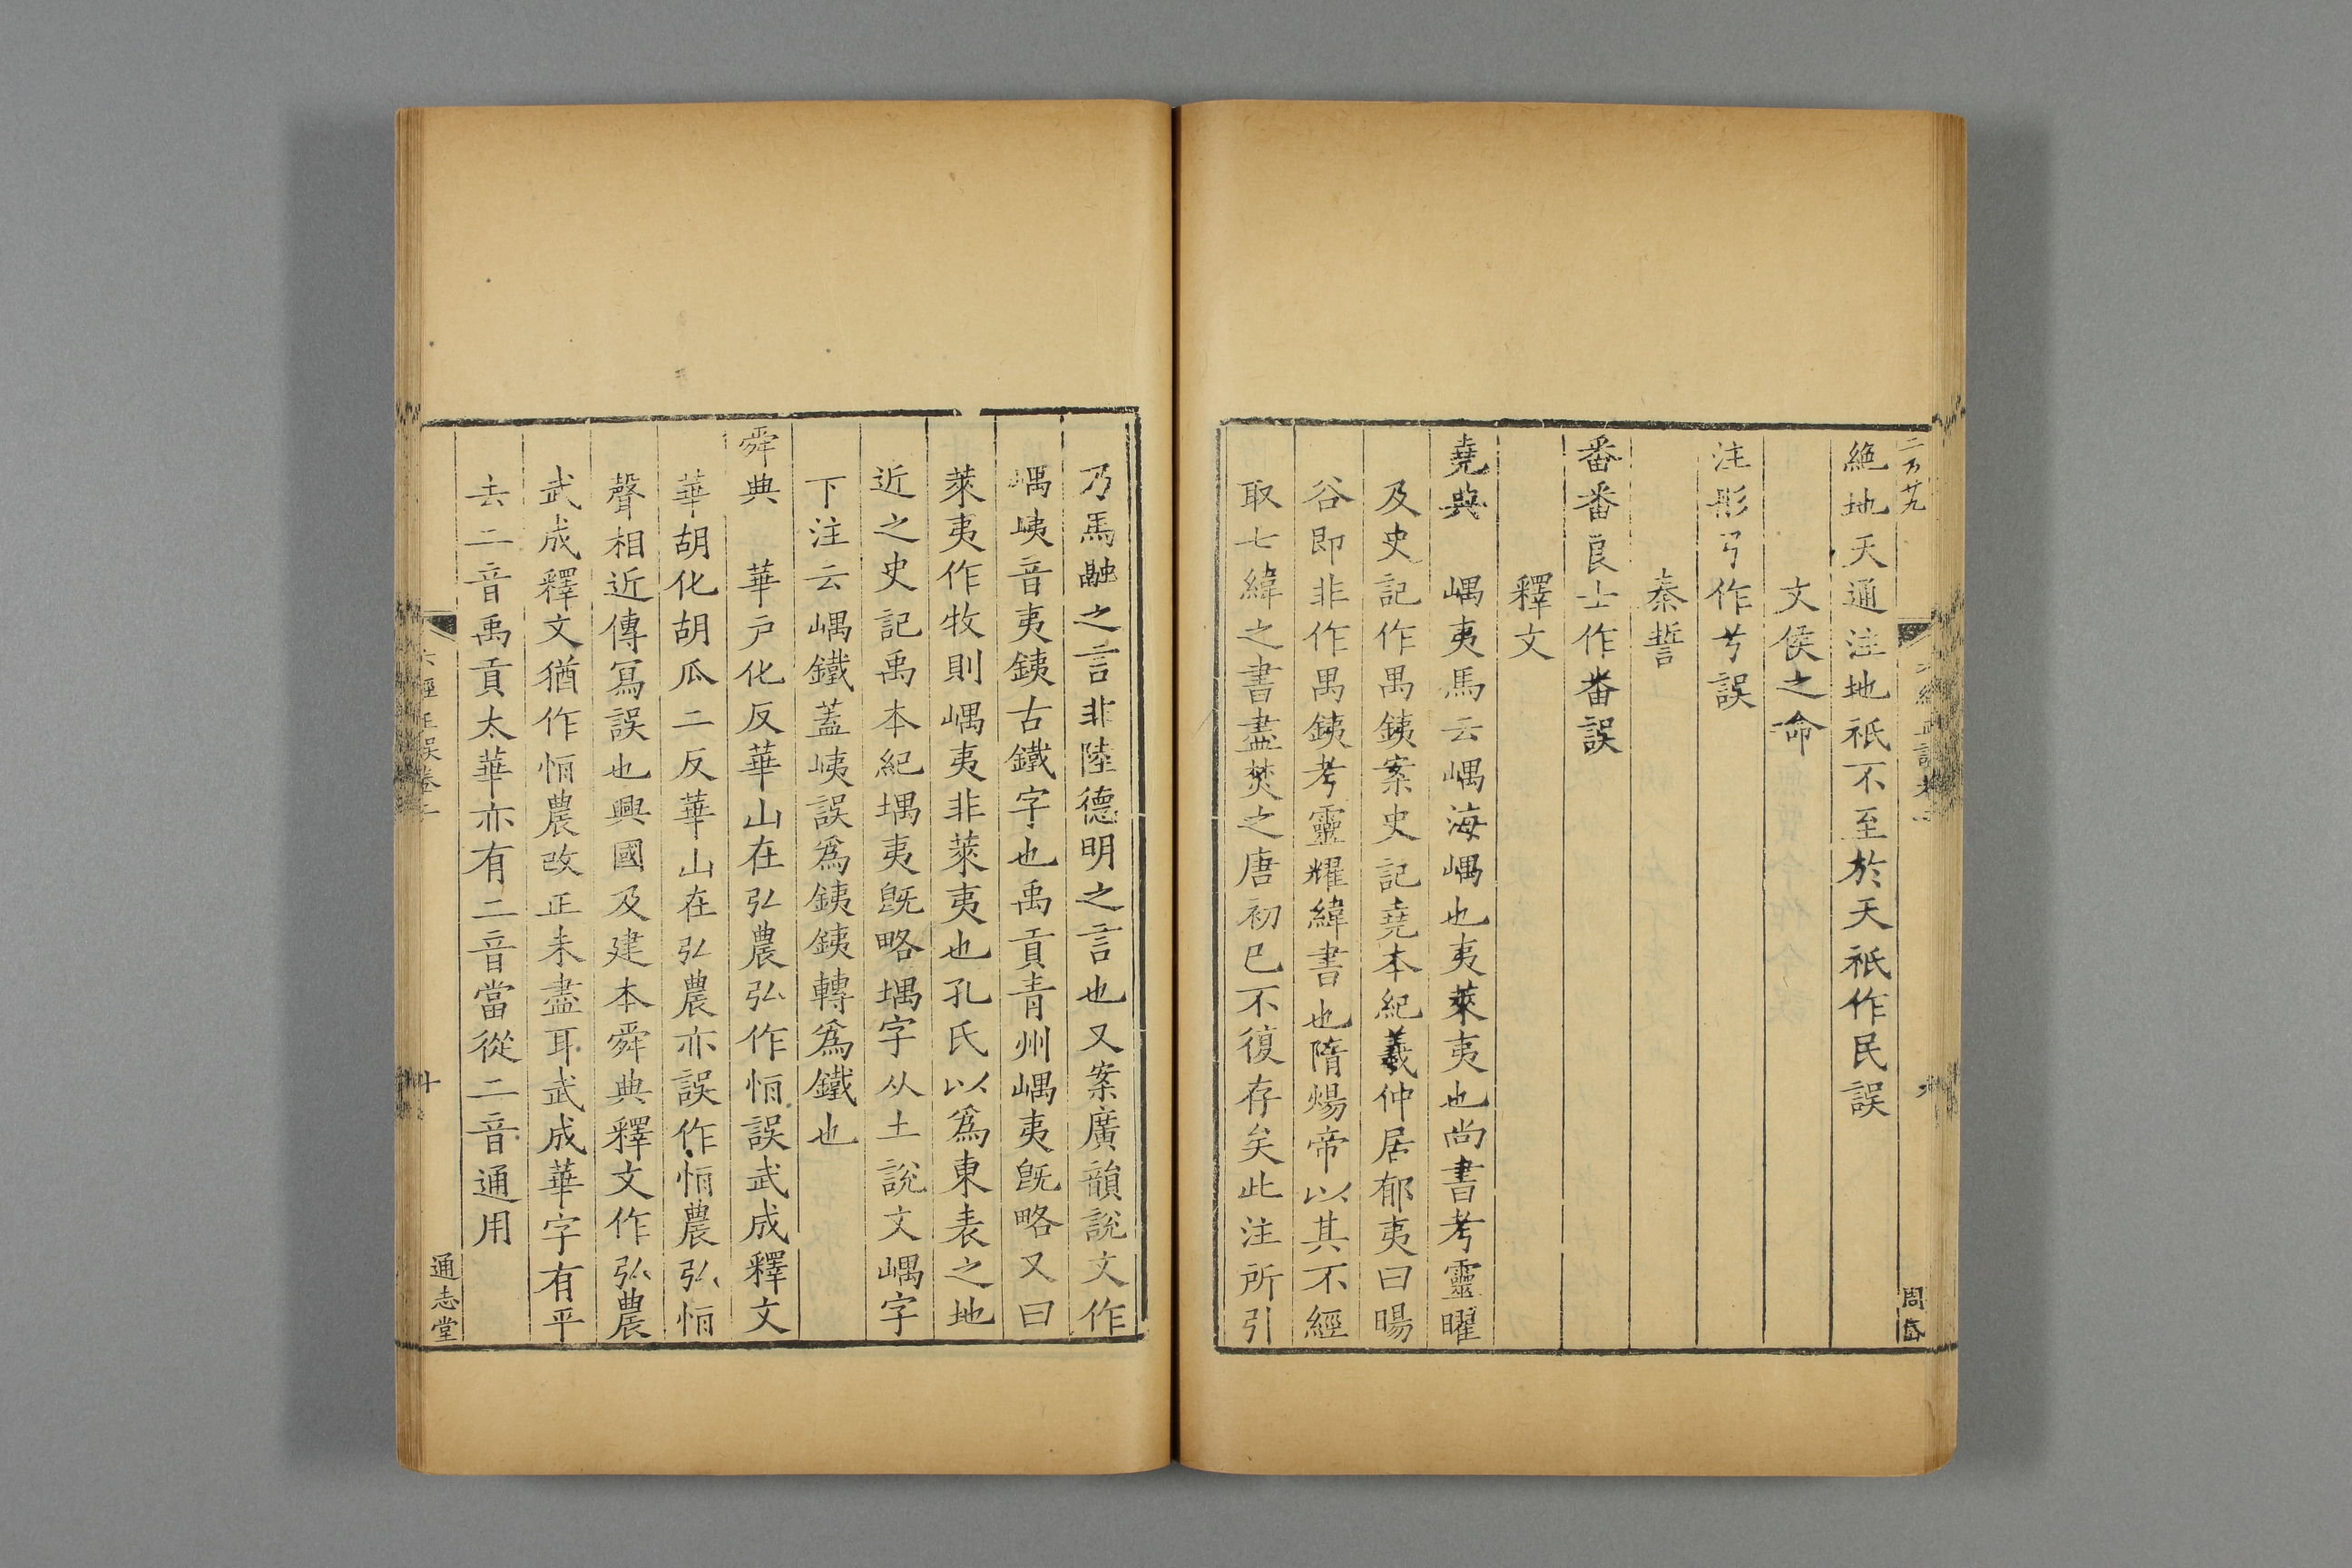 絶地天通注地祇不至於天祇作民誤
文侯之命
注彤弓作𢎗誤
秦誓
番番良士作畨誤
釋文
堯典　嵎夷馬云嵎海嵎也夷萊夷也尚書考靈曜
及史記作禺銕案史記堯本紀羲仲居郁夷曰暘
谷即非作禺銕考靈耀緯書也隋煬帝以其不經
取七緯之書盡焚之唐初已不復存矣此注所引
乃馬融之言非陸德明之言也又案廣韻說文作
嵎峓音夷銕古鐵字也禹貢青州嵎夷旣略又曰
萊夷作牧則嵎夷非萊夷也孔氏以爲東表之地
近之史記禹本紀堣夷旣略堣字从土說文嵎字
下注云嵎鐵蓋峓誤爲銕銕轉爲鐵也
舜典　華戸化反華山在弘農弘作恒誤武成釋文
華胡化胡瓜二反華山在弘農亦誤作恒農弘恒
聲相近傳寫誤也興國及建本舜典釋文作弘農
武成釋文猶作恒農改正未盡耳武成華字有平
去二音禹貢太華亦有二音當從二音通用
六經正誤卷二
十
通志堂